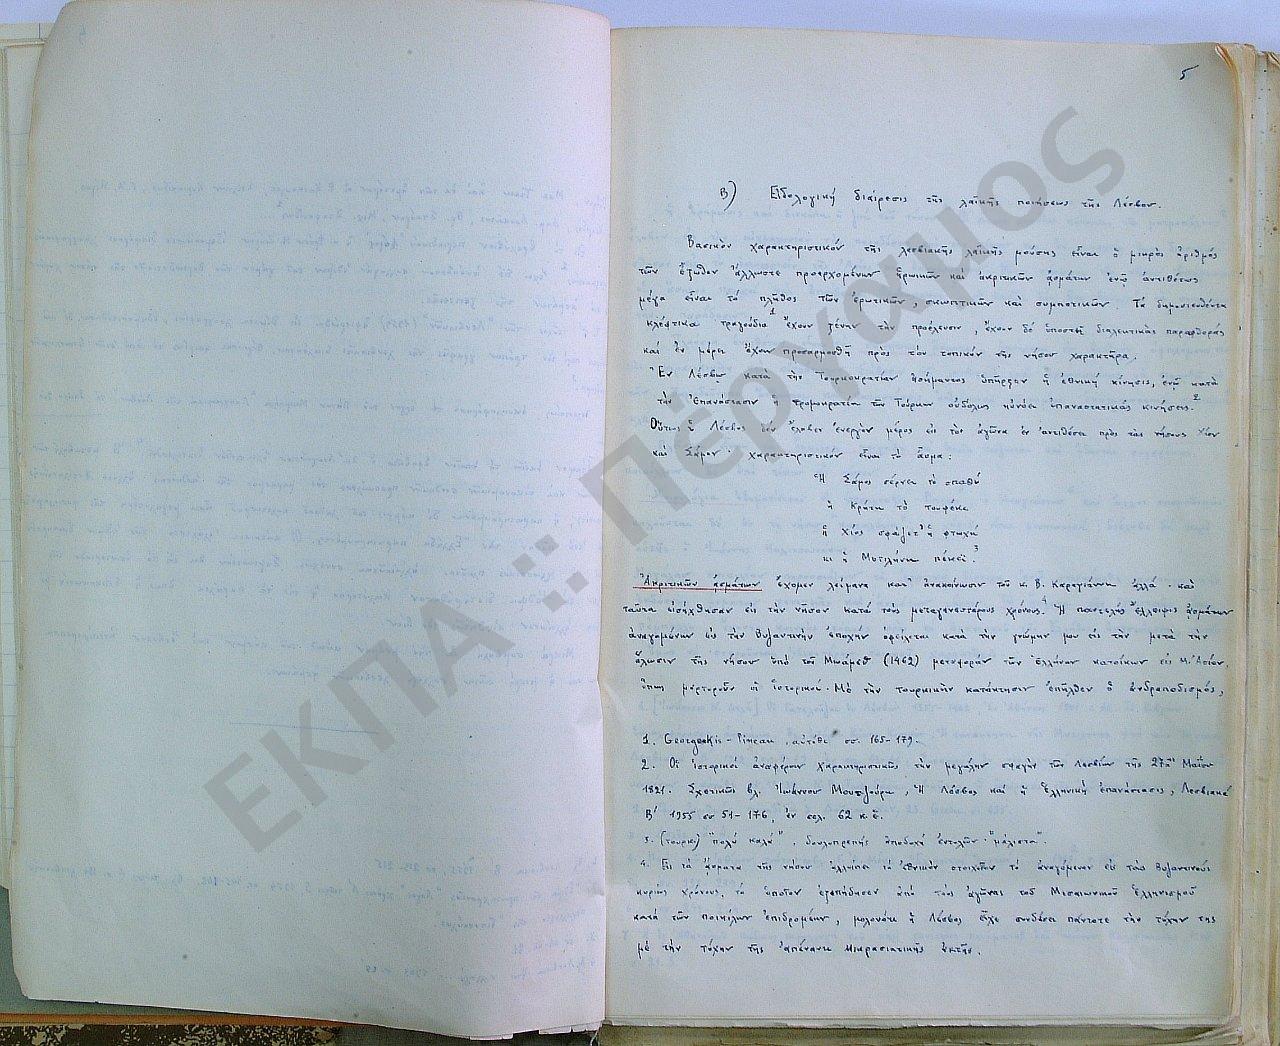 5
Β) Εἰδολογική διαίρεσις τῆς λαϊκῆς ποιήσεως τῆς Λέσβου.
Βασικόν χαρακτηριστικόν τῆς λεσβιακῆς λαϊκῆς μούσης εἶναι ὁ μικρός ἀριθμός
τῶν ἔξωθεν ἄλλωστε προερχομένων ἡρωικῶν καί ἀκριτικῶν ᾀσμάτων ἐνῷ ἀντιθέτως
μέγα εἶναι τό πλῆθος τῶν ἐρωτικῶν, σκωπτικῶν καί συμποτικῶν. Τά δημοσιευθέντα
κλέφτικα τραγούδια 1 ἔχουν ξένην τήν προέλευσιν, ἔχουν δέ ὑποστῆ διαλεκτικάς παραφθοράς
καί ἐν μέρει ἔχουν προσαρμοσθῆ πρός τόν τοπικόν τῆς νήσου χαρακτῆρα.
Ἐν Λέσβῳ κατά τήν Τουρκοκρατίαν ἀσήμαντος ὑπῆρξεν ἡ ἐθνική κίνησις, ἐνῷ κατά
τήν Ἐπανάστασιν ἡ τρομοκρατία τῶν Τούρκων οὐδόλως ηὐνόει ἐπαναστατικάς κινήσεις. 2
Οὕτως ἡ Λέσβος δέν ἔλαβεν ἐνεργόν μέρος εἰς τόν ἀγῶνα ἐν ἀντιθέσει πρός τάς νήσους Χίον
καί Σάμον· χαρακτηριστικόν εἶναι τό ᾆσμα:
Ἡ Σάμος σέρνει τό σπαθί
ἡ Κρήτη τό τουφέκι
ἡ Χίος σφάζετ' ἡ φτωχή
κι ἡ Μυτιλήνη πέκεϊ 3
Ἀκριτικῶν ᾀσμάτων ἔχομεν λείμανα κατ' ἀνακοίνωσιν τοῦ κ. Β. Καραγιάννη ἀλλά καί
ταῦτα εἰσήχθησαν εἰς τήν νῆσον κατά τούς μεταγενεστέρους χρόνους. 4 Ἡ παντελής ἔλλειψις ᾀσμάτων
ἀναγομένων εἰς τήν βυζαντινήν ἐποχήν ὀφείλεται κατά τήν γνώμην μου εἰς τήν μετά τήν
ἅλωσιν τῆς νήσου ὑπό τοῦ Μωάμεθ (1462) μεταφοράν τῶν Ἑλλήνων κατοίκων εἰς Μ. Ἀσίαν,
ὅπως μαρτυροῦν οἱ ἱστορικοί. Μέ τήν τουρκικήν κατάκτησιν ἐπῆλθεν ὁ ἀνδραποδισμός,
1. Georgeakis - Pineau, αὐτόθι σσ. 165-179.
2. Οἱ ἱστορικοί ἀναφέρουν χαρακτηριστικῶς τήν μεγάλην σφαγήν τῶν Λεσβίων τῆς 27ης Μαΐου
1821. Σχετικῶς βλ. Ἰωάννου Μουτζούρη, Ἡ Λέσβος καί ἡ ἑλληνική ἐπανάστασις, Λεσβιακά
Β' 1955 σσ 51-176, ἐν σελ. 62 κ.ἑ.
3. (τουρκ.) "πολύ καλά", δουλοπρεπής ἀποδοχή ἐντολῶν· "μάλιστα".
4. Εἰς τά ᾄσματα τῆς νήσου ἐλλείπει τό ἐθνικόν στοιχεῖον τό ἀναγόμενον εἰς τούς βυζαντινούς
κυρίως χρόνους, τό ὁποῖον ἐξεπήδησεν ἀπό τούς ἀγῶνας τοῦ Μεσαιωνικοῦ Ἑλληνισμοῦ
κατά τῶν ποικίλων ἐπιδρομέων, μολονότι ἡ Λέσβος εἶχε συνδέσει πάντοτε τήν τύχην της
μέ τήν τύχην τῆς ἀπέναντι Μικρασιατικῆς ἀκτῆς.
ΕΚΠΑ :: Πέργαμος